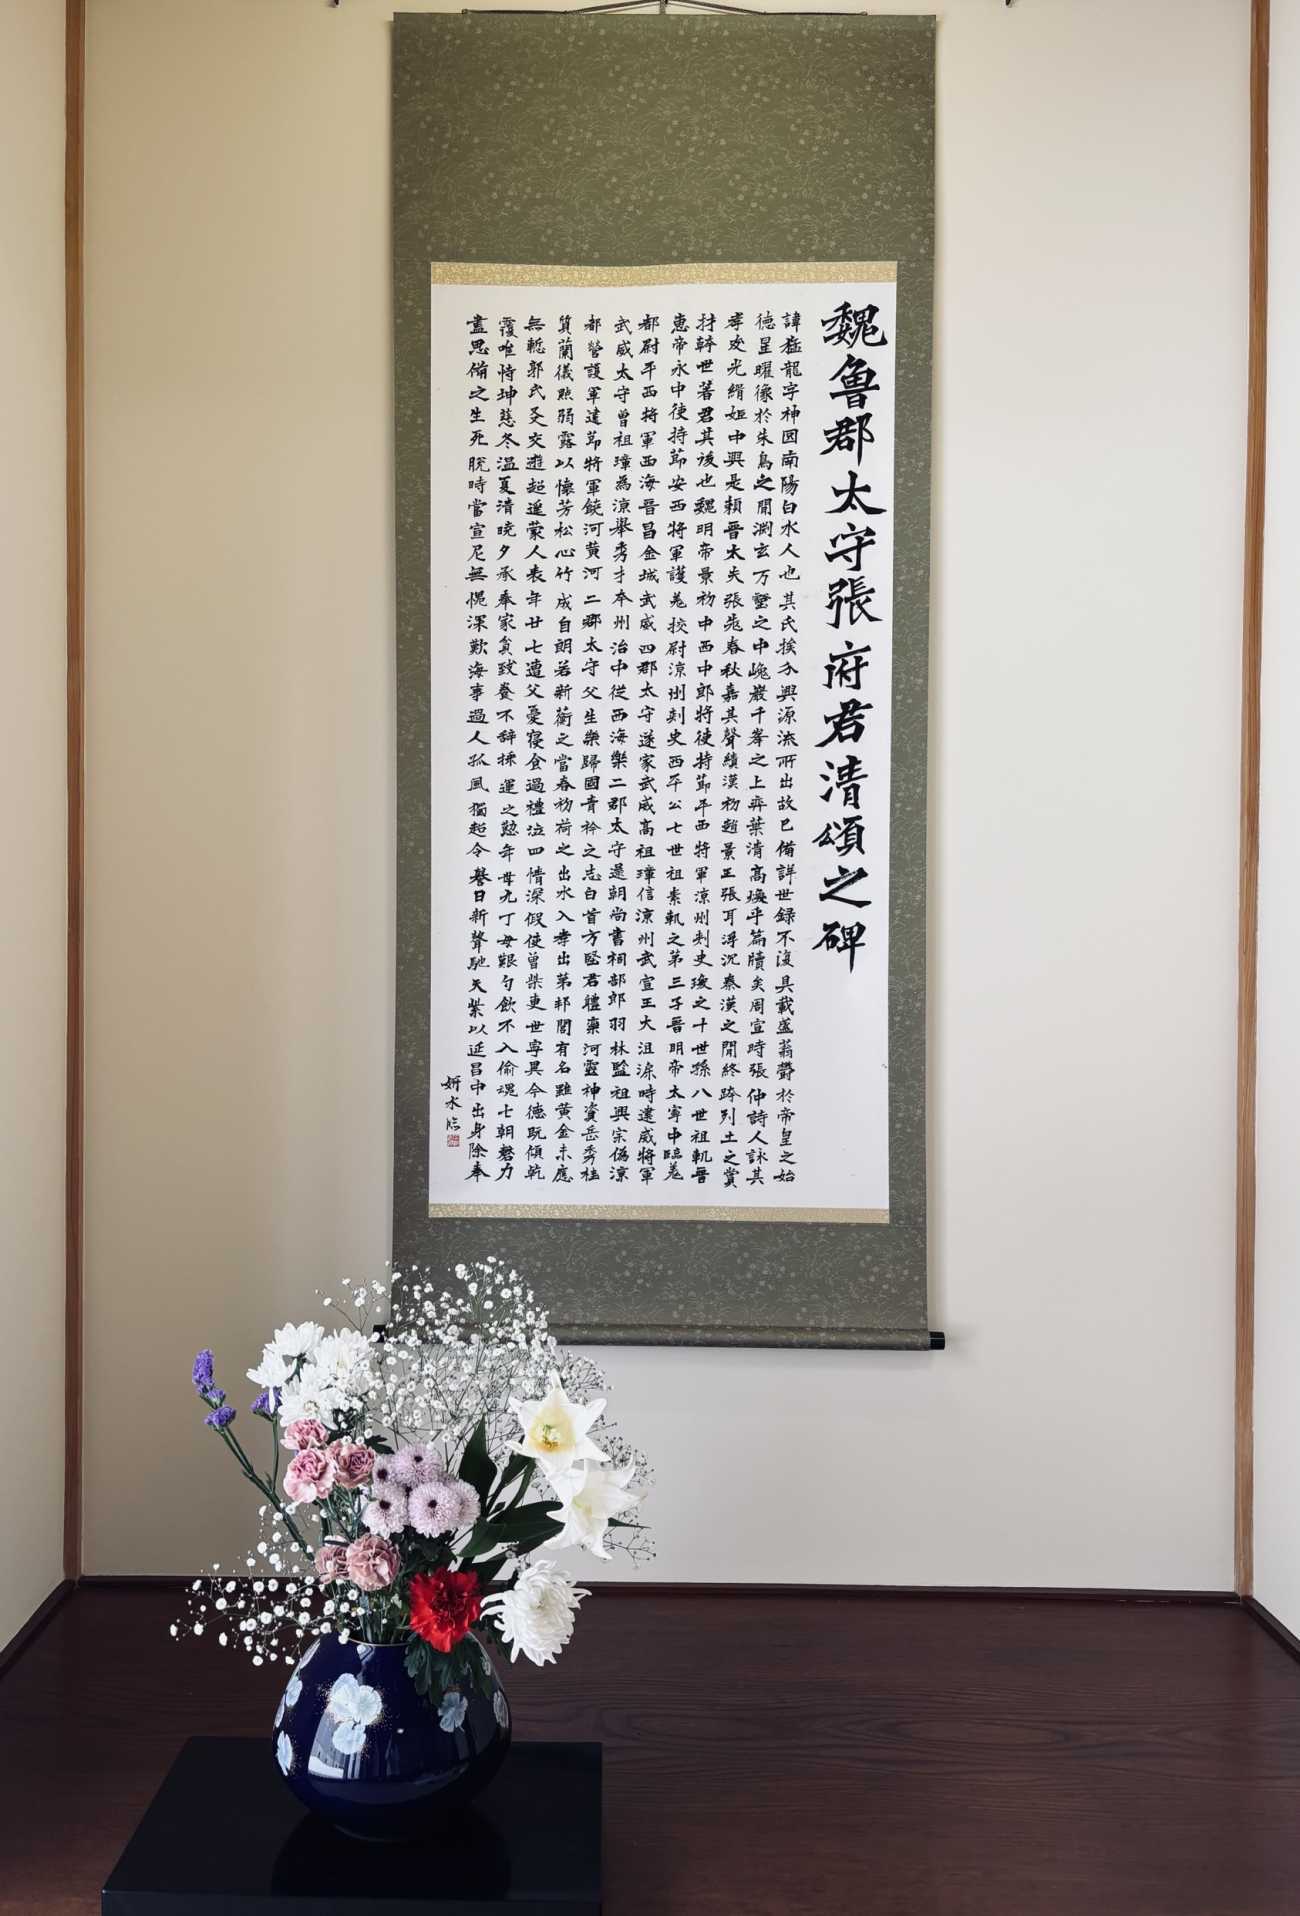 魏魯郡太守張府君清頌之碑
諱猛龍字神囧南陽白水人也其氏族分興源流所出故已備詳世録不復具載盛蓊欝於帝皇之始
德星曜像於朱鳥之閒淵玄万壑之中巉巖千峯之上弈葉清高煥乎篇牘矣周宣時張仲詩人詠其
孝友光緝姬中興是賴晉大夫張老春秋嘉其聲績漢初趙景王張耳浮沉秦漢之閒終跨列土之賞
才幹世著君其後也魏明帝景初中西中郎將使持節平西將軍涼州刺史瑍之十世孫八世祖軌晉
惠帝永中使持節安西將軍護羌挍尉涼州刺史西平公七世祖素軌之第三子晉明帝太寧中臨羌
都尉平西將軍西海晉昌金城武威四郡太守遂家武威高祖璋信涼州武宣王大沮渠時建威將軍
武威太守曾祖璋為涼舉秀才本州治中從西海樂二郡太守還朝尚書祠部郎羽林監祖興宗偽涼
都營護軍建節將軍饒河黃河二郡太守父生樂歸國青衿之志白首方堅君體稟河靈神資岳秀桂
質蘭儀點弱露以懷芳松心竹成自朗若新蘅之當春初荷之出水入孝出第邦閭有名雖黃金未應
無慙郭氏友交遊超遥蒙人表年廿七遭父憂寢食過禮泣四情深假使曾柴更世寧異今德既傾乾
覆唯恃坤慈冬温夏清曉夕承奉家貧致養不辞採運之懃年卅九丁母艱勺飲不入偷魂七朝磬力
盡思備之生死脱時當宣尼無愧深歎每事過人孤風獨超令譽日新聲馳天紫以延昌中出身除奉
妍水臨